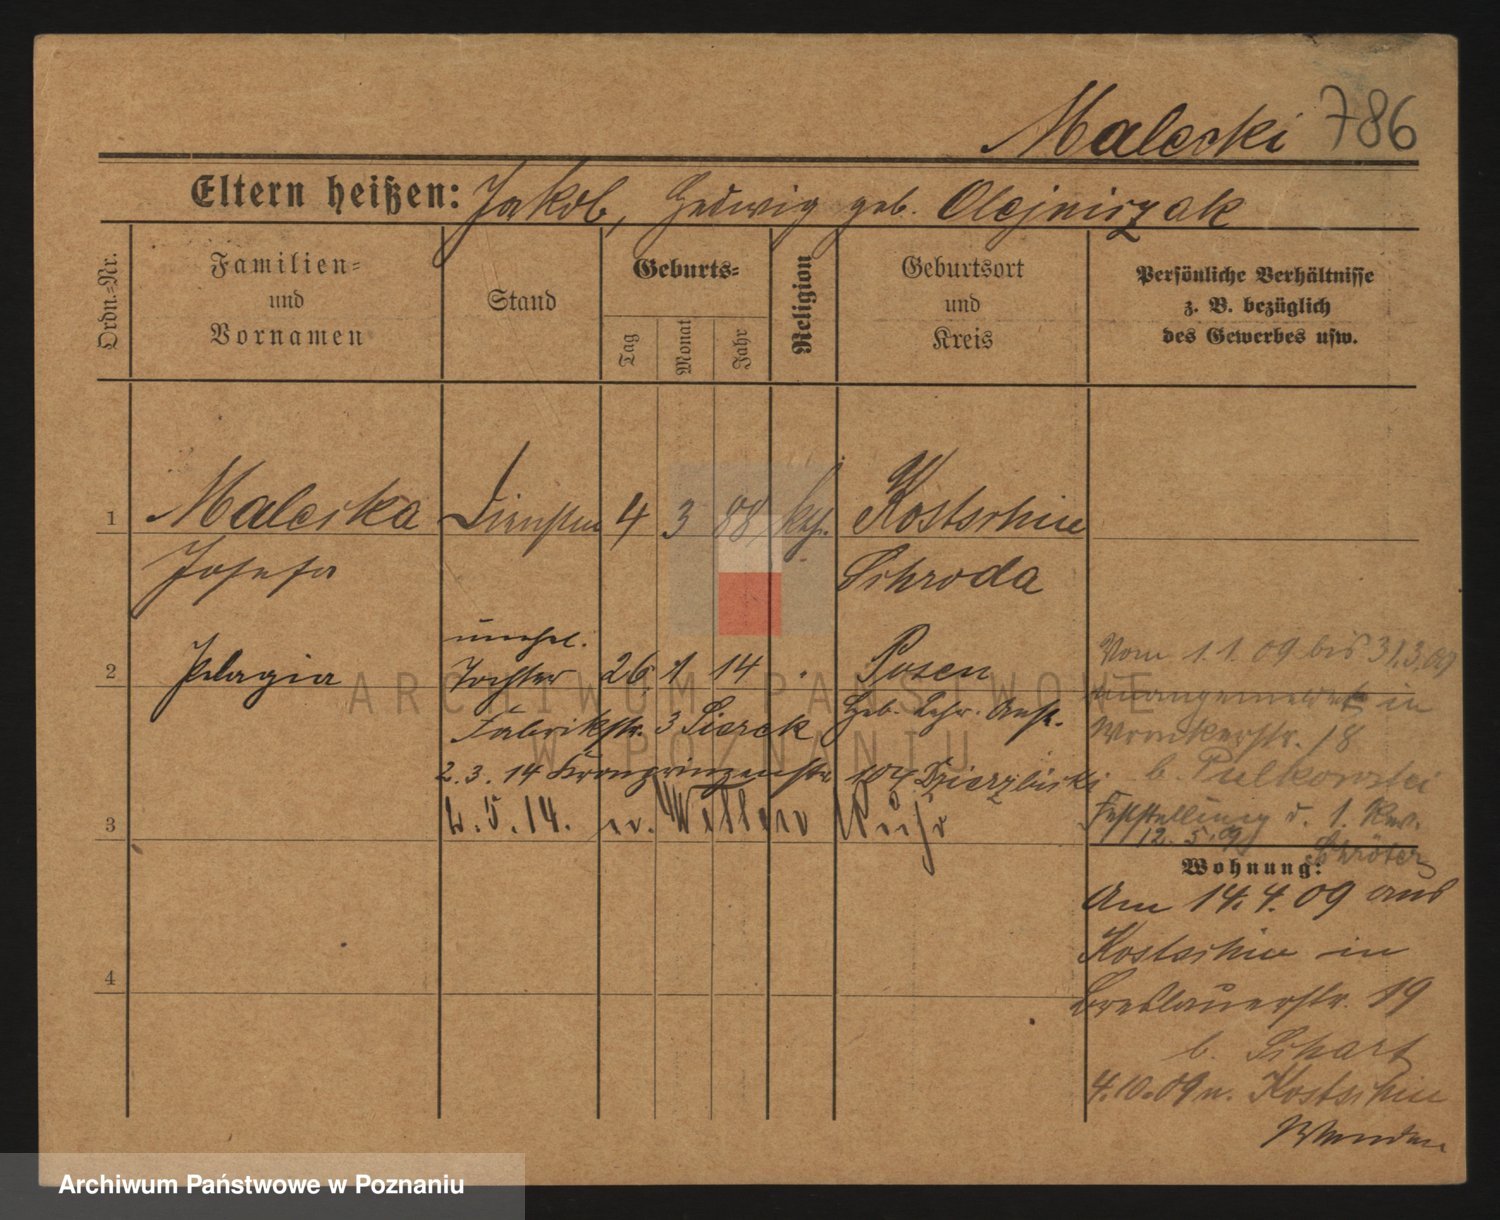 Malecki 786
Eltern heißen: Jakob, Hedwig geb. Olejniczak
Ordn.-Nr.
Familien-
und
Vornamen
Stand
Geburts-
Tag
Monat
Jahr
Religion
Geburtsort
und
Kreis
Persönliche Verhältnisse
z. B. bezüglich
des Gewerbes usw.
1 Malecka 4 3 88 Kostschin
Josefa Schroda
unehel.
2 Pelagia Tochter 26 1 14 Posen
Fabrikstr. 3 Sierck Heb. Lehr. Anst.
2.3.14 Kronprinzenstr 104 Dzierzbicki
3 2.5.14. n.
4
Vom 1.1.09 bis 31.3.09
in
Wronkerstr. 18
b. Pulkowski
Feststellung d. 1. Rev.
12.5.9
Schröter
Wohnung:
Am 14.4.09 aus
Kostschin in
Breslauerstr. 19
b. Schart
4.10.09 n. Kostschin
ARCHIWUM PAŃSTWOWE
W POZNANIU
Archiwum Państwowe w Poznaniu